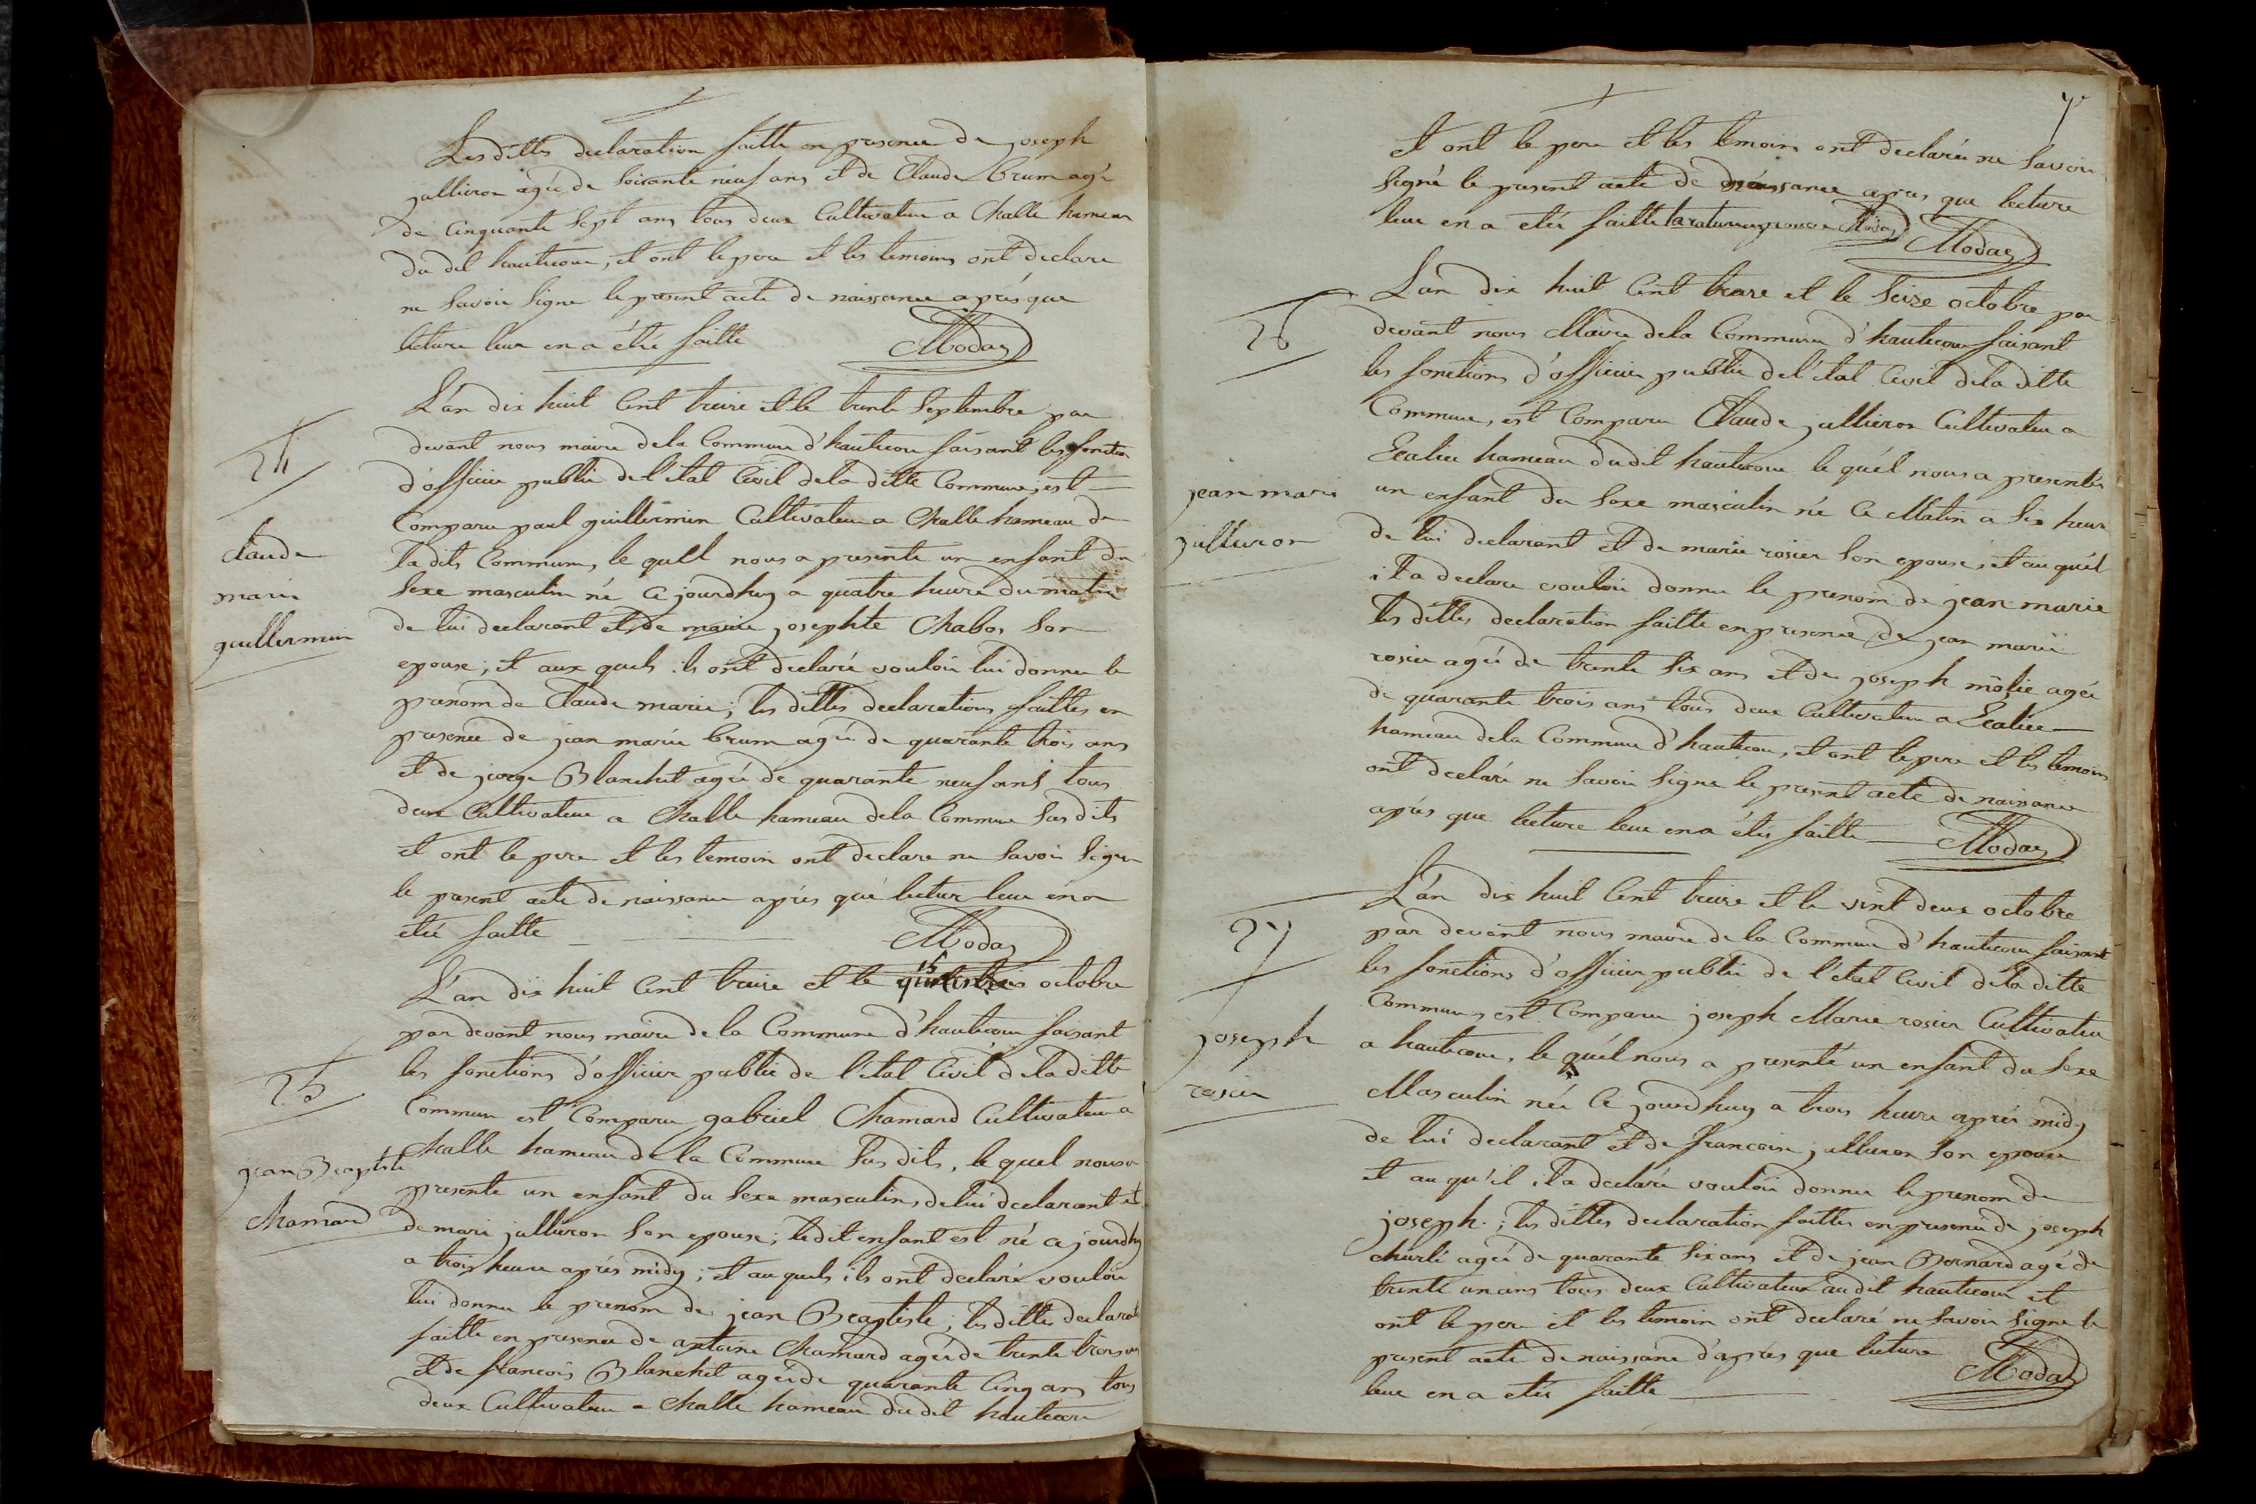 Les dittes declaration faitte en presence de joseph
jullieron agée de Soixante neuf ans et de Claude brum agé
de Cinquante Sept ans tous deux Cultivateur a Challe hameau
du dit hautecour, et ont le pere et les temoins ont declare
ne Savoir Signe le present acte de naissance aprés que
lecture leur en a été faitte
Moday
24
Claude
marie
guillermin
L'an dix huit Cent treize et le trente Septembre par
devant nous maire dela Commune d'hautecour faisant les fonction
d'officier public de l'etat Civil dela ditte Commune, est
Comparu paul guillermin Cultivateur a Challe hameau de
la dits Commune, le quell nous a presente un enfant du
Sexe masculin né Ce jourdhuy a quatre heure du matin
de lui declarant et de marie josephte Chabos Son
epouse; et aux quels ils ont declaré vouloir lui donner le
prenom de Claude marie; les dittes declarations faittes en
presence de jean marie brum agée de quarante trois ans
et de jorge Blanchet agée de quarante neuf ans tous
deux Cultivateur a Challe hameau dela Commune Sus dits
et ont le pere et les temoin ont declare ne Savoir Signer
le present acte de naissance aprés que lectur leur en a
eté faitte
Moday
25
jean Baptiste
Chamard
L'an dix huit Cent treize et le 15 octobre
par devant nous maire de la Commune d'hautecour faisant
les fonctions d'officier public de l'etat Civil dela ditte
Commun est Comparu gabriel Chamard Cultivateur a
Challe hameau de la Commune Sus dits, le quel nous a
presente un enfant du Sexe masculin, de lui declarant et
de mari julluron Son epouse; ledit enfant est né ce jourdhy
a trois heure aprés midy; et au quels ils ont declaré vouloir
lui donner le prenom de jean Beaptiste; les dittes declaration
faitte en presence de antoine Chamard agée de trente trois ans
et de francois Blanchet agée de quarante Cinq ans tous
deux Cultivateur a Challe hameau du dit hautecour
et ont le pere et les temoins ont declarée ne Savoir
Signé le present acte de naissance apres que lecture
leur en a etée faitte la rature aprouvee Moday
Moday
26
jean mari
julluron
L'an dix huit Cent treze et le Seize octobre par
devant nous Maire dela Commune d'hautecour faisant
les fonctions d'officier public de l'etat Civil dela ditte
Commune, est Comparu Claude jullieron Cultivateur a
Ecalier hameau dudit hautecour le quél nous a presentés
un enfant du Sexe masculin né Ce Matin a Six heur
de lui declarant et de marie rosier Son epouse, et au quél
il a declare vouloir donner le prenom de jean marie
les dittes declaration faitte en presence de jean marie
rosier agée de trente Six ans et de joseph môlie agée
de quarante trois ans tous deux Cultivateur a Ecalier
hameau dela Commune d'hautecour, et ont le pere et les temoins
ont declaré ne Savoir Signe le present acte de naissance
aprés que lecture leur en a étée faitte
Moday
27
joseph
rosier
L'an dix huit Cent treize et le vint deux octobre
par devant nous maire de la Commune d'hautecour faisant
les fonctions d'officier public de l'etat Civil dela ditte
Commune, est Comparu joseph Marie rosier Cultivateur
a hautecour, le quél nous a presenté un enfant du Sexe
Masculin née Ce jourdhuy a trois heure aprés midy
de lui declarant et de francoise julluron Son epouse
et au qu'il il a declaré vouloir donner le prenom de
joseph; les dittes declaration faittes en presence de joseph
churlé agée de quarante Six ans et de jean Bernard agé de
trente un ans tous deux Cultivateur au dit hautecour et
ont le pere et les temoin ont declaré ne Savoir Signe le
present acte de naissance d'aprés que lecture
leur en a etée faitte
Moday